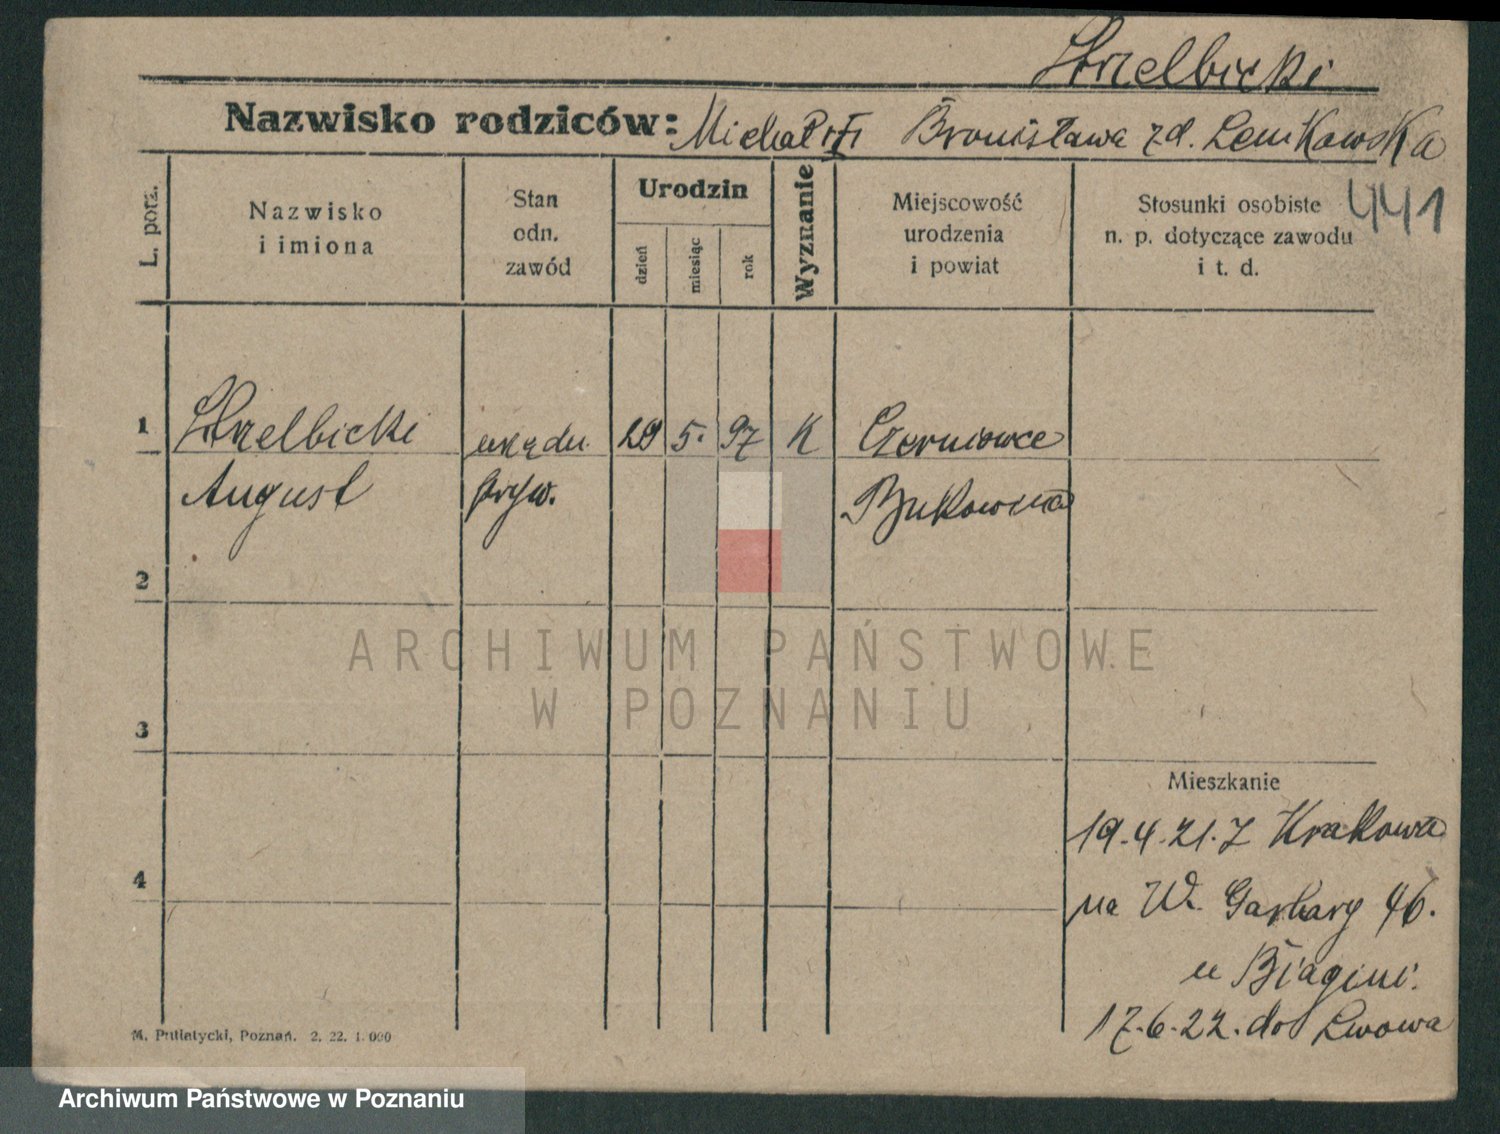 Strzelbicki
Nazwisko rodziców: Michał i Bronisława z d. Lenkowska
441
L. porz.
Nazwisko
i imiona
Stan
odn.
zawód
Urodzin
dzień
miesiąc
rok
Wyznanie
Miejscowość
urodzenia
i powiat
Stosunki osobiste
n. p. dotyczące zawodu
i t. d.
1 Strzelbicki urzędn. 29 5. 97 K Czerniowce
August pryw. Bukowina
2
3
4
Mieszkanie
19.4.21. z Krakowa
na W. Garbary 46.
u Biagini.
17.6.22. do Lwowa
M. Putiatycki, Poznań. 2. 22. 1.000
ARCHIWUM PAŃSTWOWE
W POZNANIU
Archiwum Państwowe w Poznaniu